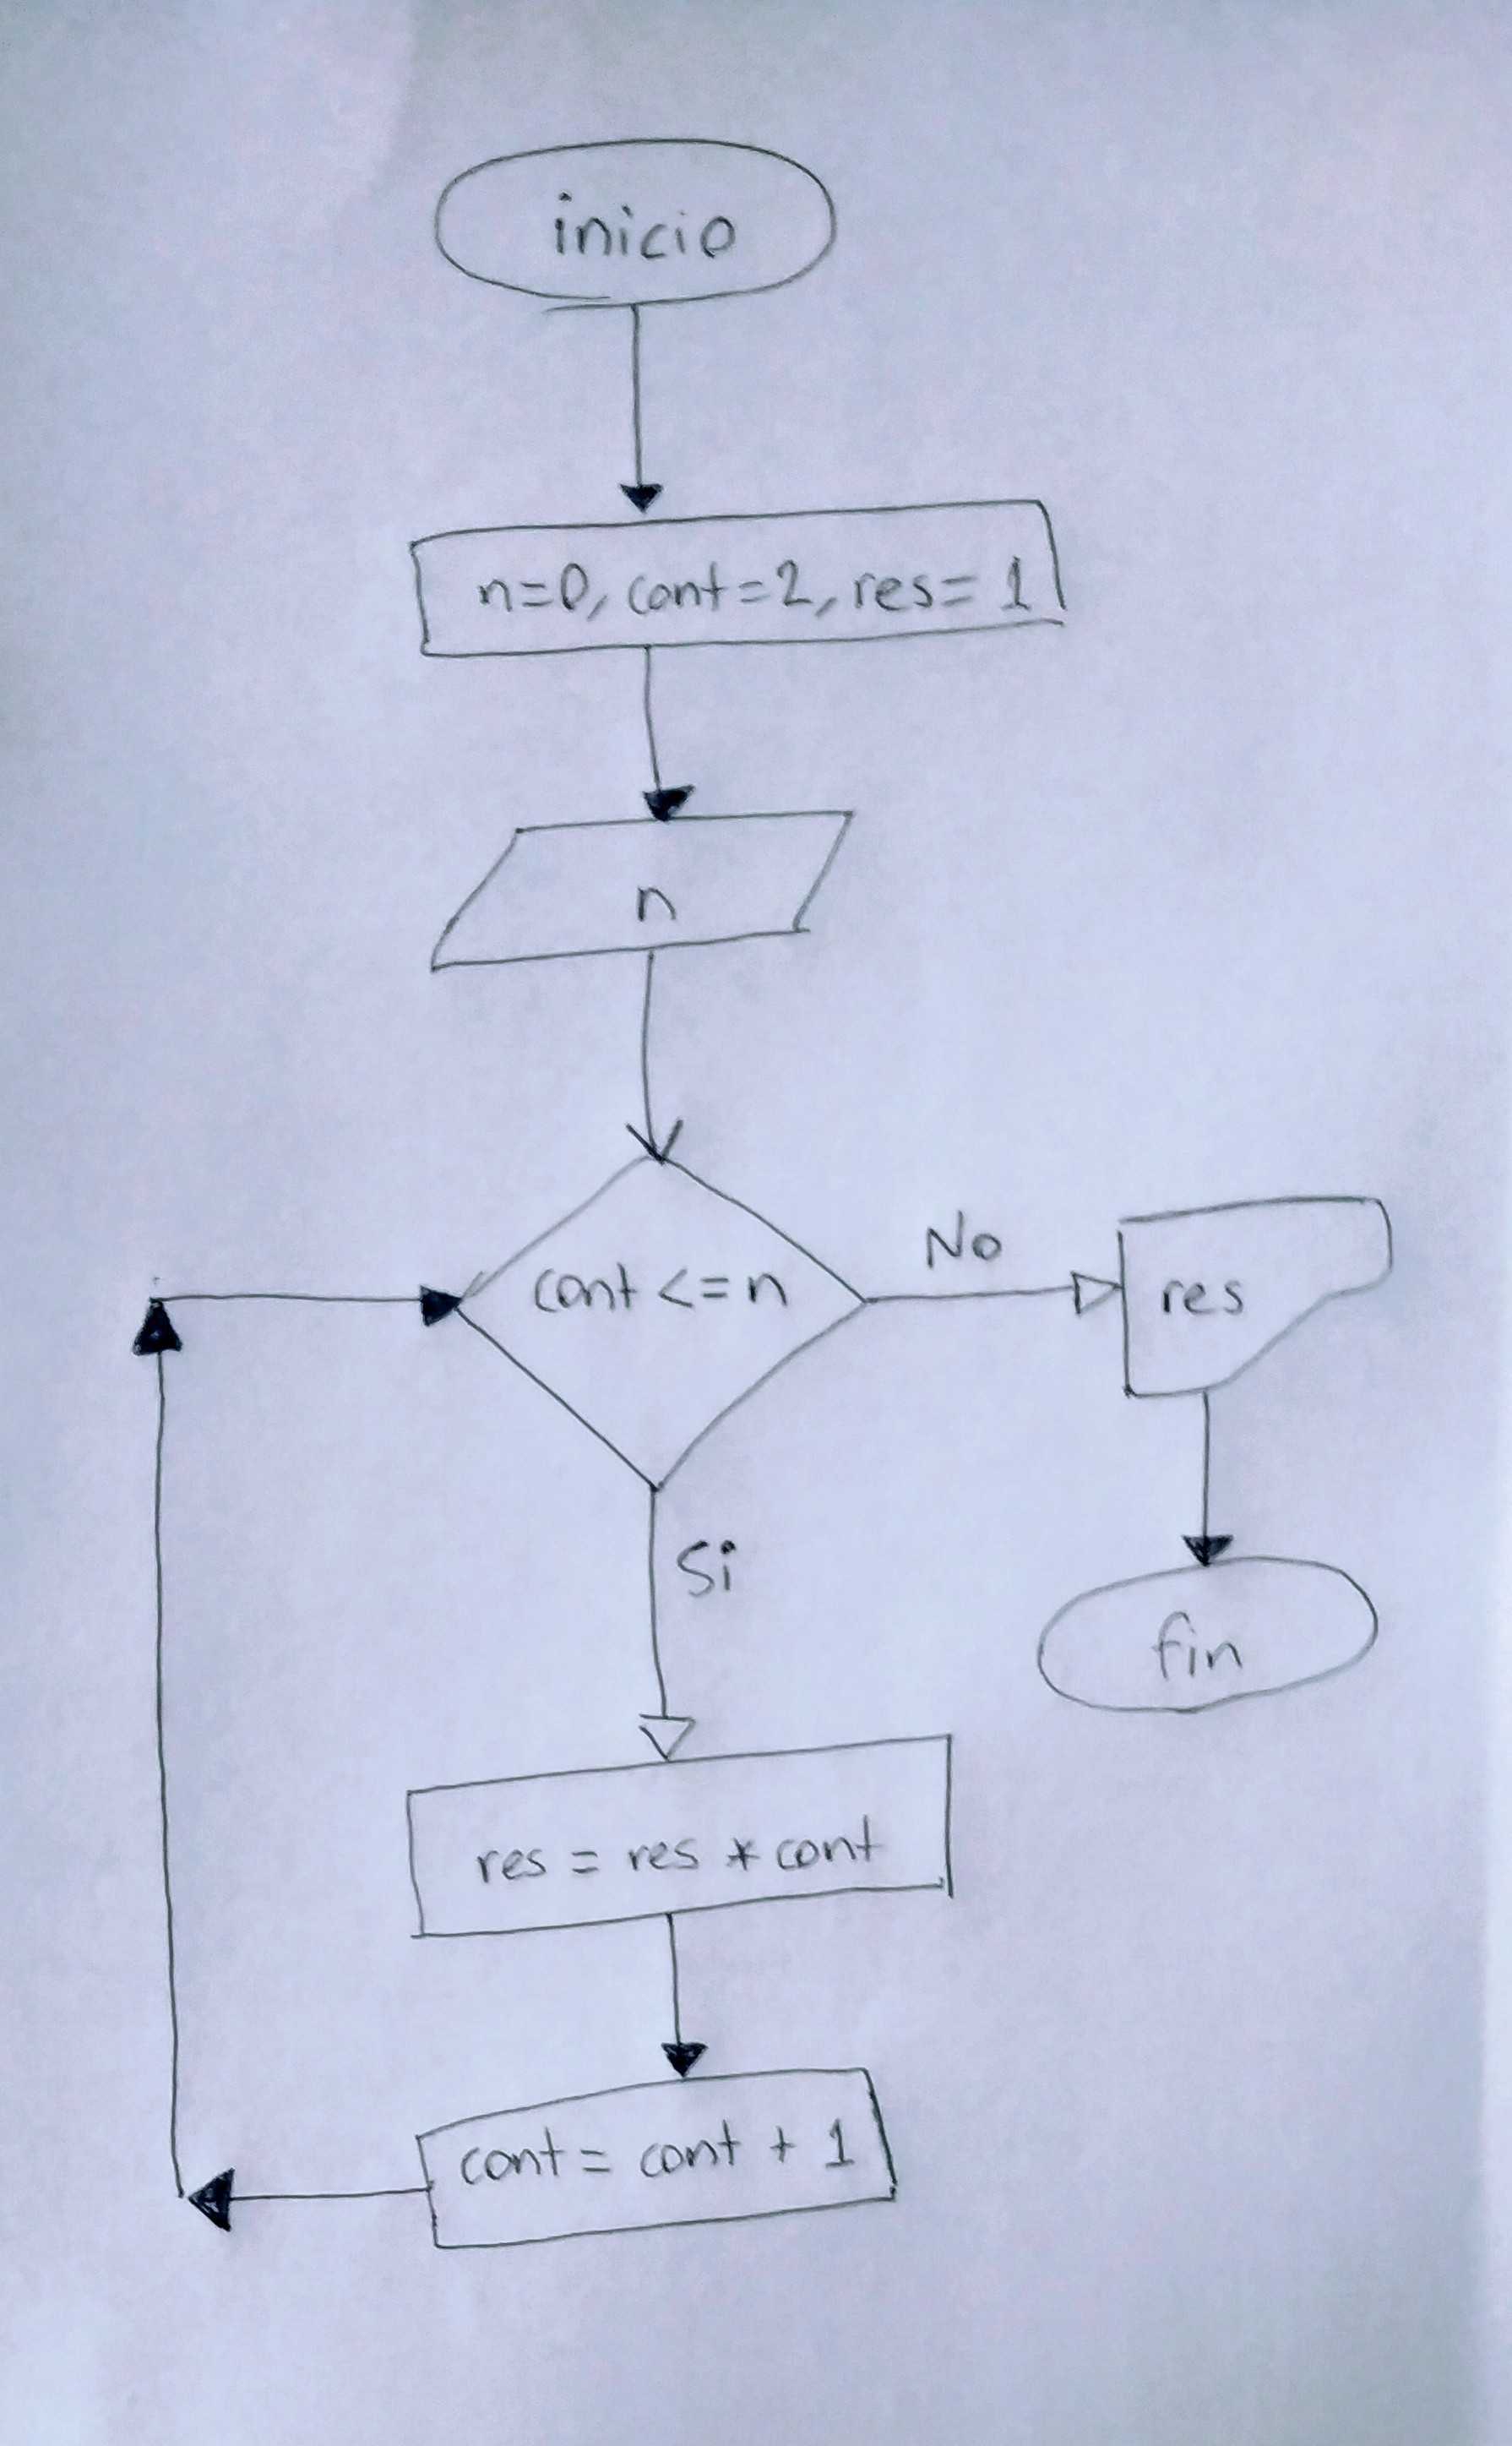 inicio
n=0, cont=2, res=1
n
cont <= n
No
res
Si
fin
res = res * cont
cont = cont + 1